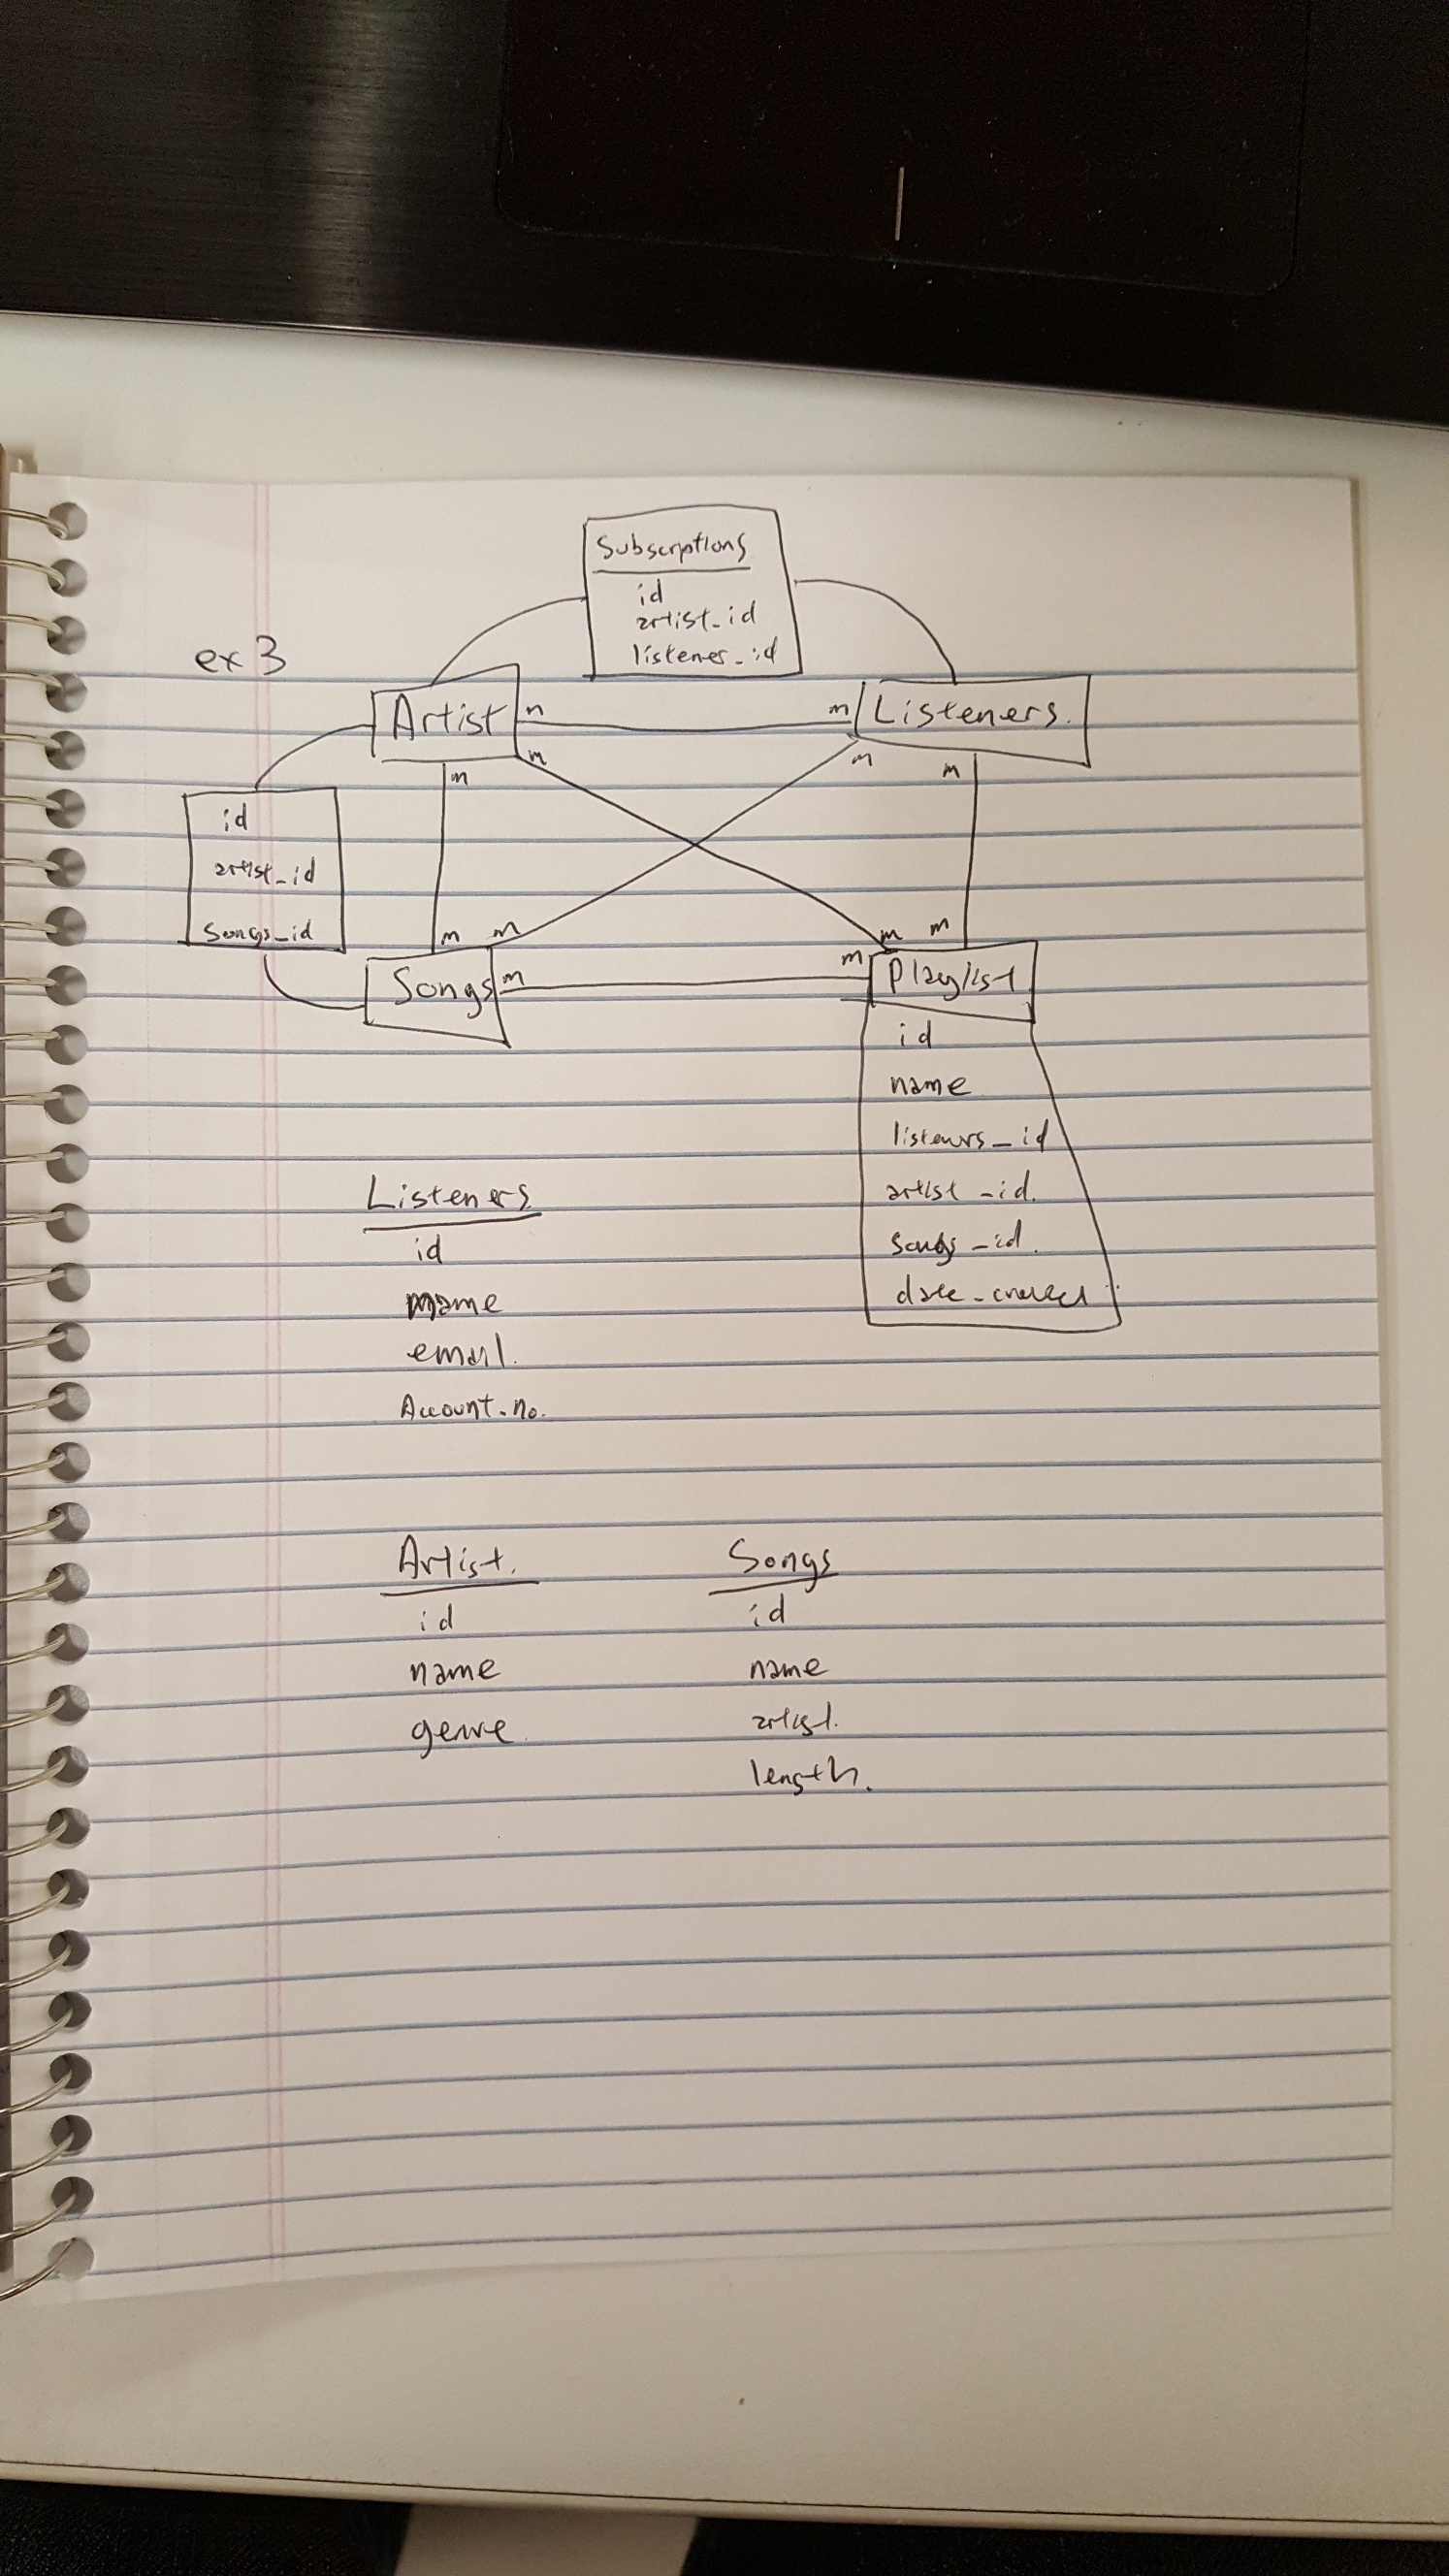 Subscriptions
id
artist_id
listener_id
ex 3
Artist
n
m
Listeners.
m
m
m
m
id
artist_id
songs_id
m
m
m
m
m
Songs
m
Playlist
id
name
listeners_id
artist_id.
songs_id.
Listeners
id
name
email.
Account.no.
Artist.
id
name
genre.
Songs
id
name
artist.
length.